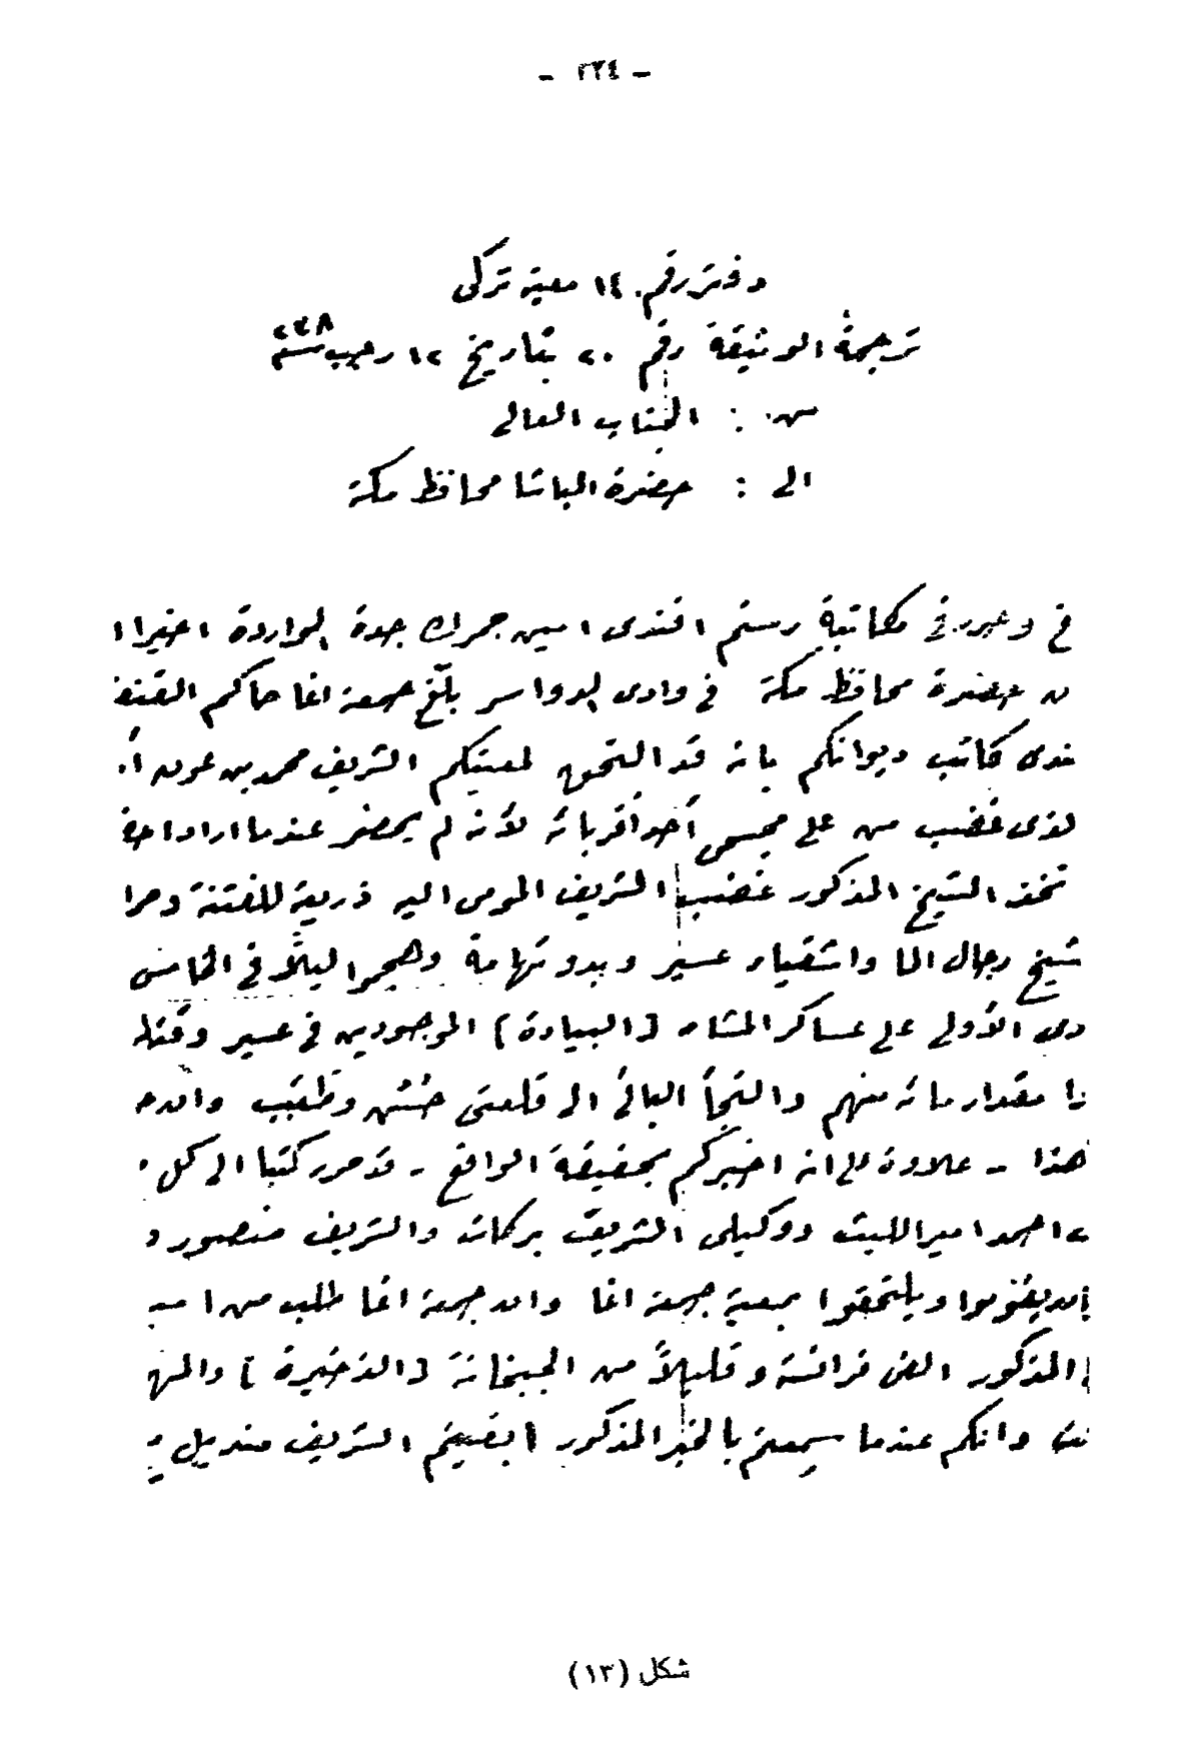 - ٢٢٤ -
دفتر رقم ١٤ معية تركى
ترجمة الوثيقة رقم ٢٠ بتاريخ ١٢ رجب سنة ٢٣٨
من : الجناب العالى
الى : حضرة الباشا محافظ مكة
فى مكاتبة رستم افندى امين جمرك جدة الواردة اخيرا ا
ن حضرة محافظ مكة فى وادى الدواسر بلّغ جمعة اغا حاكم القنفذ
ندى كاتب ديوانكم بانه قد التحق لمعيتكم الشريف محمد بن عون أ
لذى غضب من على مجسى أحد أقربائه لأنه لم يحضر عندما اراد احد
تخذ الشيخ المذكور غضب الشريف المومى اليه ذريعة للفتنة وحرا
شيخ رجال المع واشقياء عسير وبدو تهامة وهجموا ليلاً فى الخامس
دى الأولى على عساكر المشاه (البيادة) الموجودين فى عسير وقتلـ
ـا مقدار مائه منهم والتجأ الباقى الى قلعتى وطبب وان
هذا - علاوة على انه اخبركم بحقيقة الواقع - قد حرر كتبا الى كل
احمد امير الليث ووكيلى الشريف بركات والشريف منصور و
بان يقوموا ويلتحقوا بمعية جمعة اغا وان جمعة اغا طلب من ا
المذكور الفى فرانسه وقليلاً من الجبخانة (الذخيرة) والمـ
وانكم عندما سمعتم بالخبر المذكور ابقيتم الشريف منديل
شكل (١٣)